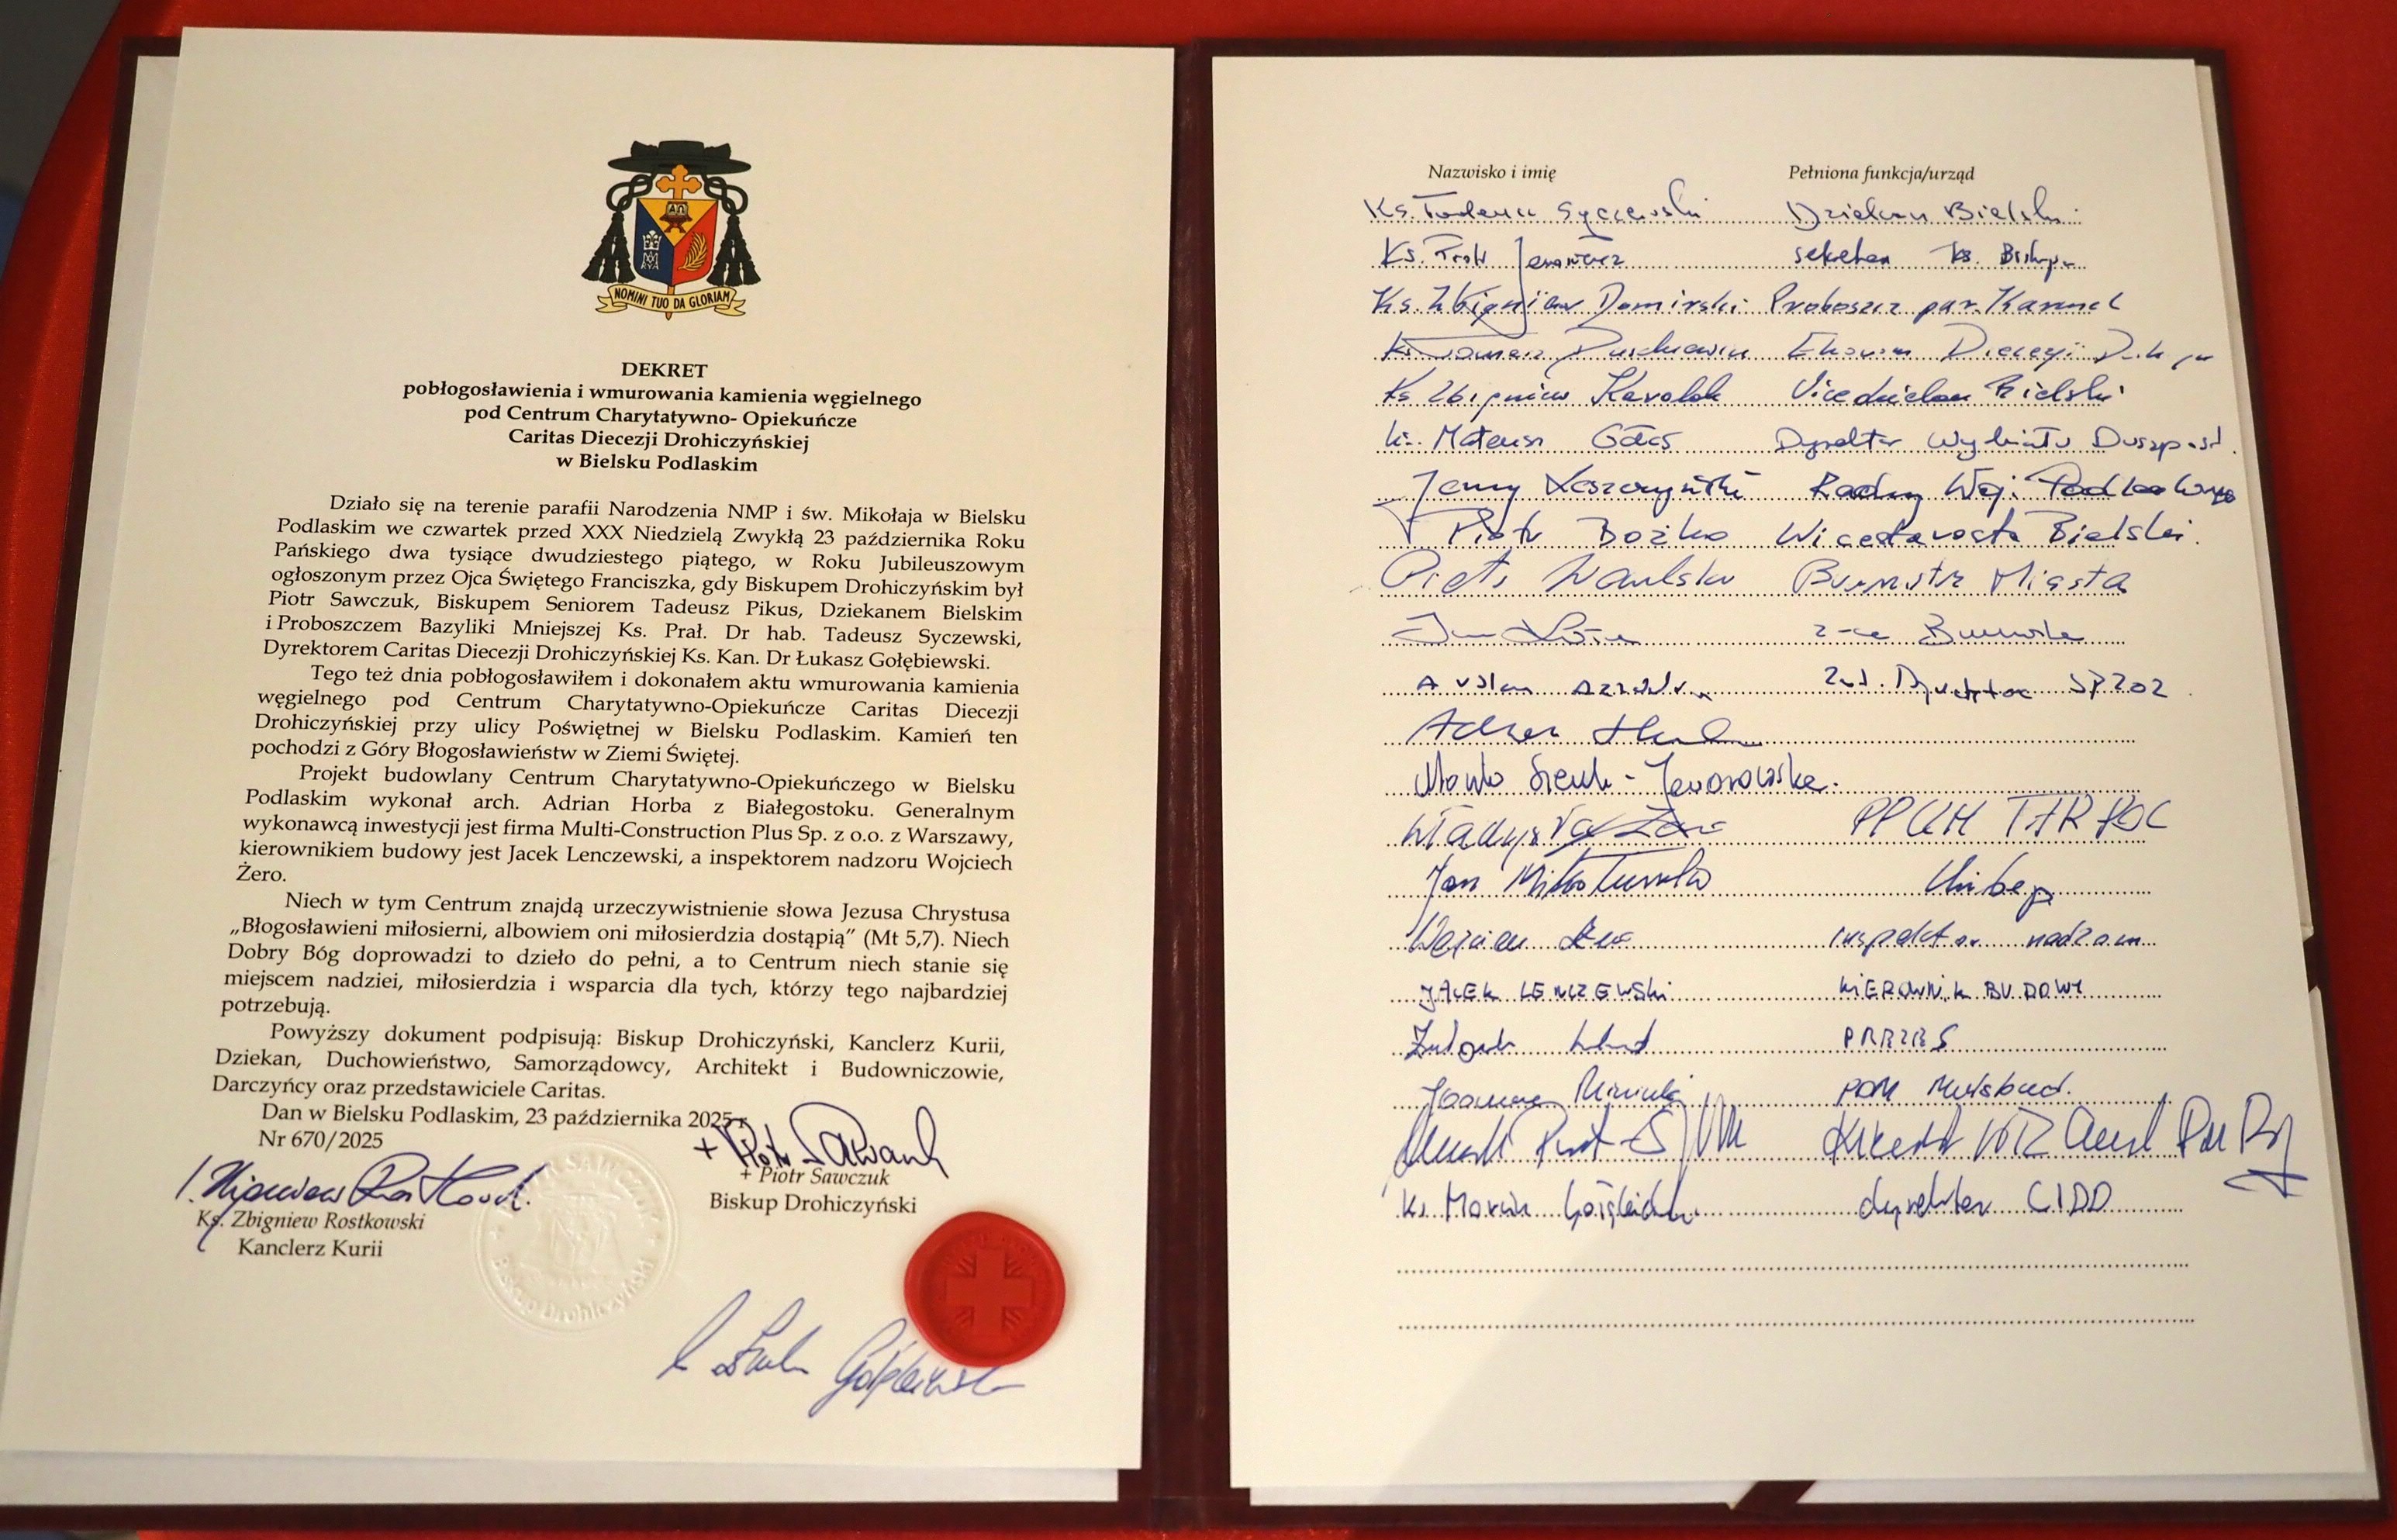 NOMINI TUO DA GLORIAM
DEKRET
pobłogosławienia i wmurowania kamienia węgielnego
pod Centrum Charytatywno- Opiekuńcze
Caritas Diecezji Drohiczyńskiej
w Bielsku Podlaskim
Działo się na terenie parafii Narodzenia NMP i św. Mikołaja w Bielsku
Podlaskim we czwartek przed XXX Niedzielą Zwykłą 23 października Roku
Pańskiego dwa tysiące dwudziestego piątego, w Roku Jubileuszowym
ogłoszonym przez Ojca Świętego Franciszka, gdy Biskupem Drohiczyńskim był
Piotr Sawczuk, Biskupem Seniorem Tadeusz Pikus, Dziekanem Bielskim
i Proboszczem Bazyliki Mniejszej Ks. Prał. Dr hab. Tadeusz Syczewski,
Dyrektorem Caritas Diecezji Drohiczyńskiej Ks. Kan. Dr Łukasz Gołębiewski.
Tego też dnia pobłogosławiłem i dokonałem aktu wmurowania kamienia
węgielnego pod Centrum Charytatywno-Opiekuńcze Caritas Diecezji
Drohiczyńskiej przy ulicy Poświętnej w Bielsku Podlaskim. Kamień ten
pochodzi z Góry Błogosławieństw w Ziemi Świętej.
Projekt budowlany Centrum Charytatywno-Opiekuńczego w Bielsku
Podlaskim wykonał arch. Adrian Horba z Białegostoku. Generalnym
wykonawcą inwestycji jest firma Multi-Construction Plus Sp. z o.o. z Warszawy,
kierownikiem budowy jest Jacek Lenczewski, a inspektorem nadzoru Wojciech
Żero.
Niech w tym Centrum znajdą urzeczywistnienie słowa Jezusa Chrystusa
„Błogosławieni miłosierni, albowiem oni miłosierdzia dostąpią” (Mt 5,7). Niech
Dobry Bóg doprowadzi to dzieło do pełni, a to Centrum niech stanie się
miejscem nadziei, miłosierdzia i wsparcia dla tych, którzy tego najbardziej
potrzebują.
Powyższy dokument podpisują: Biskup Drohiczyński, Kanclerz Kurii,
Dziekan, Duchowieństwo, Samorządowcy, Architekt i Budowniczowie,
Darczyńcy oraz przedstawiciele Caritas.
Dan w Bielsku Podlaskim, 23 października 2025 r.
Nr 670/2025
+ Piotr Sawczuk
+ Piotr Sawczuk
Biskup Drohiczyński
Zbigniew Rostkowski
Ks. Zbigniew Rostkowski
Kanclerz Kurii
Biskup Drohiczyński
Nazwisko i imię Pełniona funkcja/urząd
Ks. Tadeusz Syczewski Dziekan Bielski
Ks. Piotr sekretarz Ks. Biskupa
Ks. Zbigniew Domirski Proboszcz par. Karmel
Ks. Tomasz Ekonom Diecezji
Ks Zbigniew Karolak Vicedziekan Bielski
ks. Mateusz Gołoś Dyrektor Wydziału Duszpast.
Jerzy Leszczyński Radny Woj. Podlaskiego
Piotr Bożko Wicestarosta Bielski
Piotr Burmistrz Miasta
z-ca Burmistrza
Zast. Dyrektora SPZOZ
Jaworowska
Władysław PPUH
Jan Mikołuszko Unibep
Wojciech Żero Inspektor nadzoru
JACEK LENCZEWSKI KIEROWNIK BUDOWY
PREZES
Joanna
Ks. Marcin Gołębiewski dyrektor